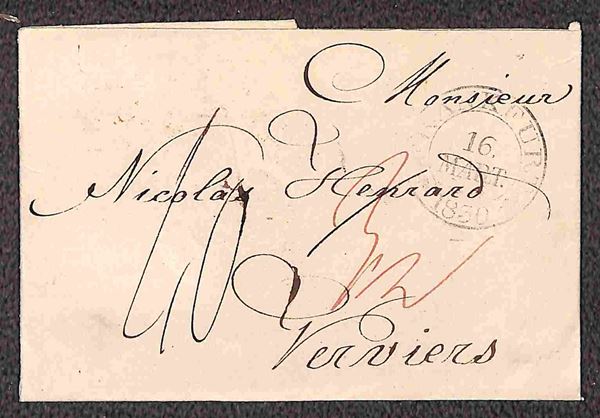 Monsieur
Nicolas Henrard
Verviers
16.
MART.
1830